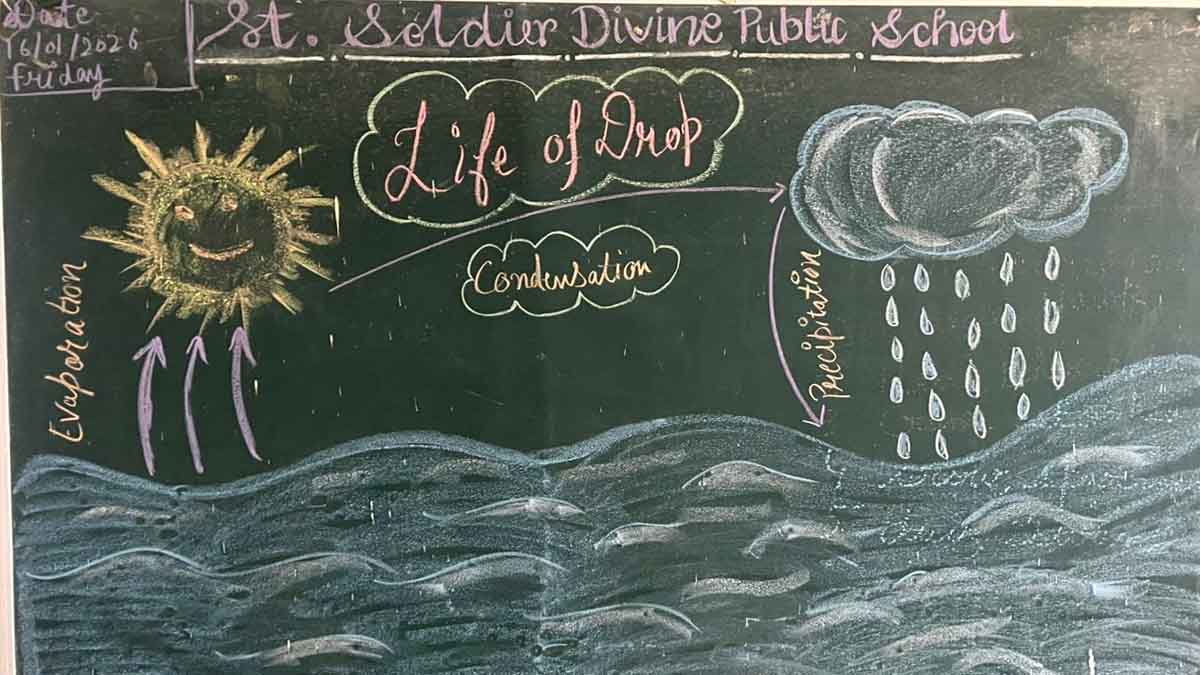 Date
16/01/2026
Friday
St. Soldier Divine Public School
Life of Drop
Condensation
Evaporation
Precipitation